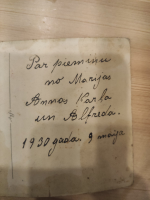 Par piemiņu
no Marijas
Annas Karla
un Alfreda.
1930 gada. 9 maija